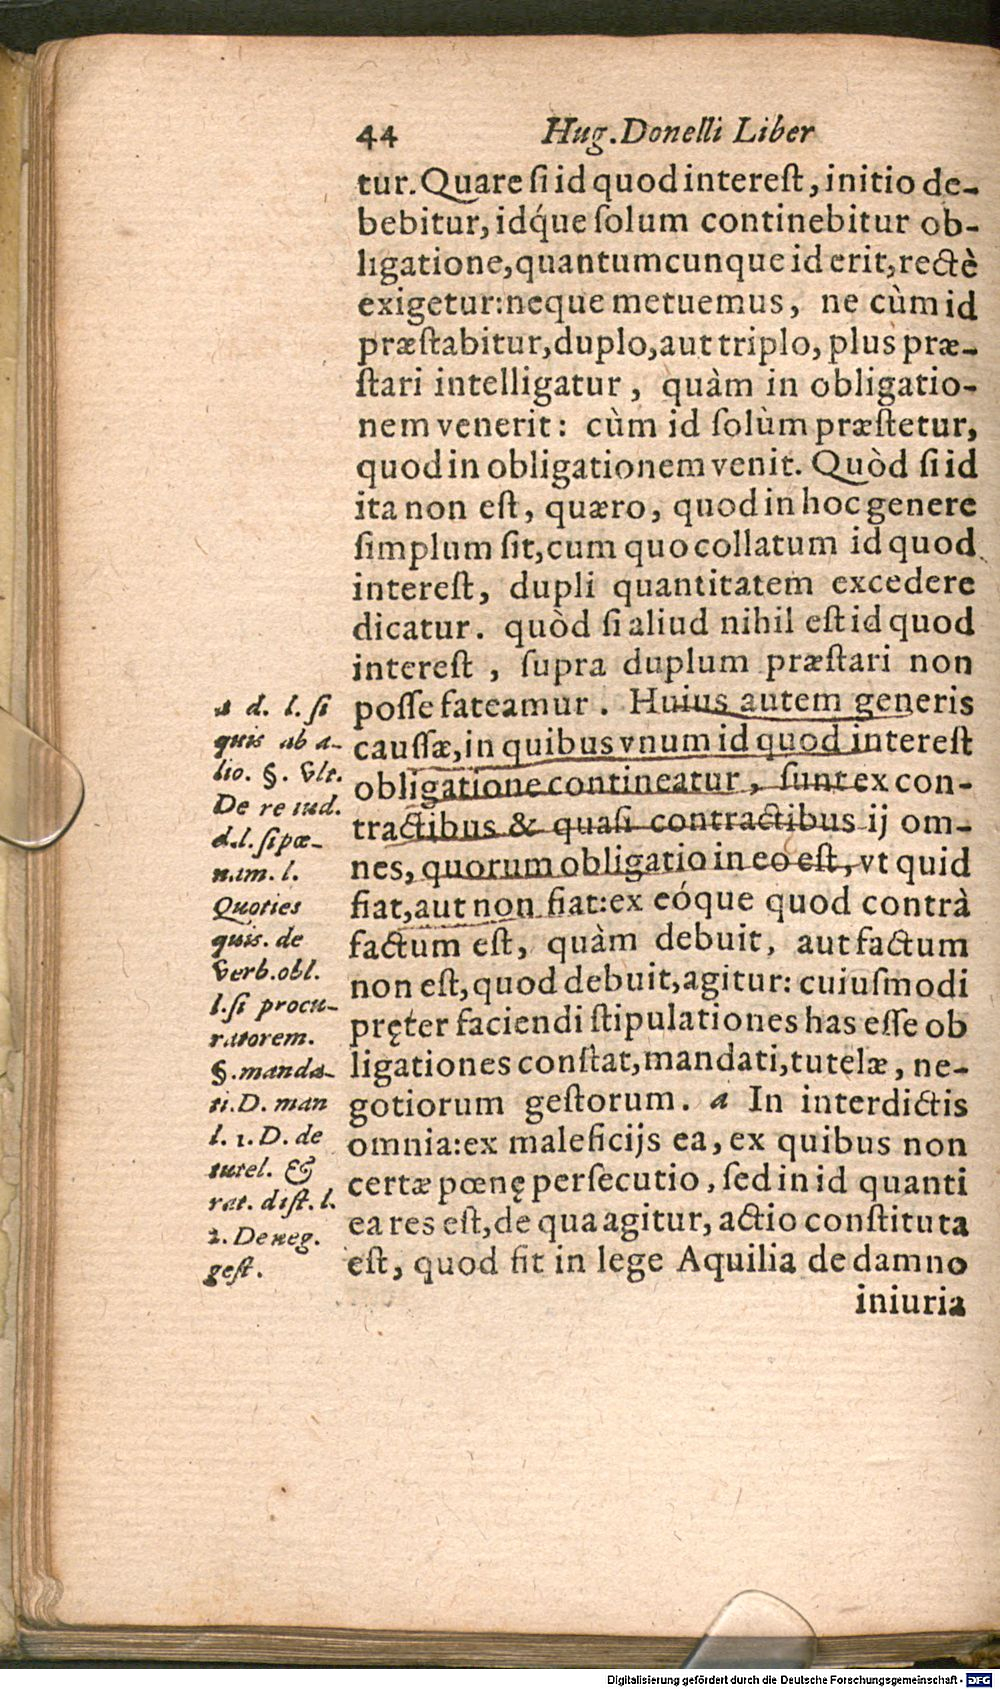 44 Hug. Donelli Liber
tur. Quare ſi id quod intereſt, initio de-
bebitur, idq́ue ſolum continebitur ob-
ligatione, quantumcunque id erit, rectè
exigetur: neque metuemus, ne cùm id
præſtabitur, duplo, aut triplo, plus præ-
ſtari intelligatur, quàm in obligatio-
nem venerit: cùm id ſolùm præſtetur,
quod in obligationem venit. Quòd ſi id
ita non eſt, quæro, quod in hoc genere
ſimplum ſit, cum quo collatum id quod
intereſt, dupli quantitatem excedere
dicatur. quòd ſi aliud nihil eſt id quod
intereſt, ſupra duplum præſtari non
poſſe fateamur. Huius autem generis
cauſſæ, in quibus vnum id quod intereſt
obligatione contineatur, ſunt ex con-
tractibus & quaſi contractibus ij om-
nes, quorum obligatio in eo eſt, vt quid
fiat, aut non fiat: ex eóque quod contrà
factum eſt, quàm debuit, aut factum
non eſt, quod debuit, agitur: cuiuſmodi
pręter faciendi ſtipulationes has eſſe ob
ligationes conſtat, mandati, tutelæ, ne-
gotiorum geſtorum. a In interdictis
omnia: ex maleficijs ea, ex quibus non
certæ pœnę perſecutio, ſed in id quanti
ea res eſt, de qua agitur, actio conſtituta
eſt, quod fit in lege Aquilia de damno
iniuria
a d. l. ſi
quis ab a-
lio. §. vlt.
De re iud.
d. l. ſi pœ-
nam. l.
Quoties
quis. de
verb. obl.
l. ſi procu-
ratorem.
§. manda-
ti. D. man
l. 1. D. de
tutel. &
rat. diſt. l.
2. De neg.
geſt.
Digitalisierung gefördert durch die Deutsche Forschungsgemeinschaft - DFG